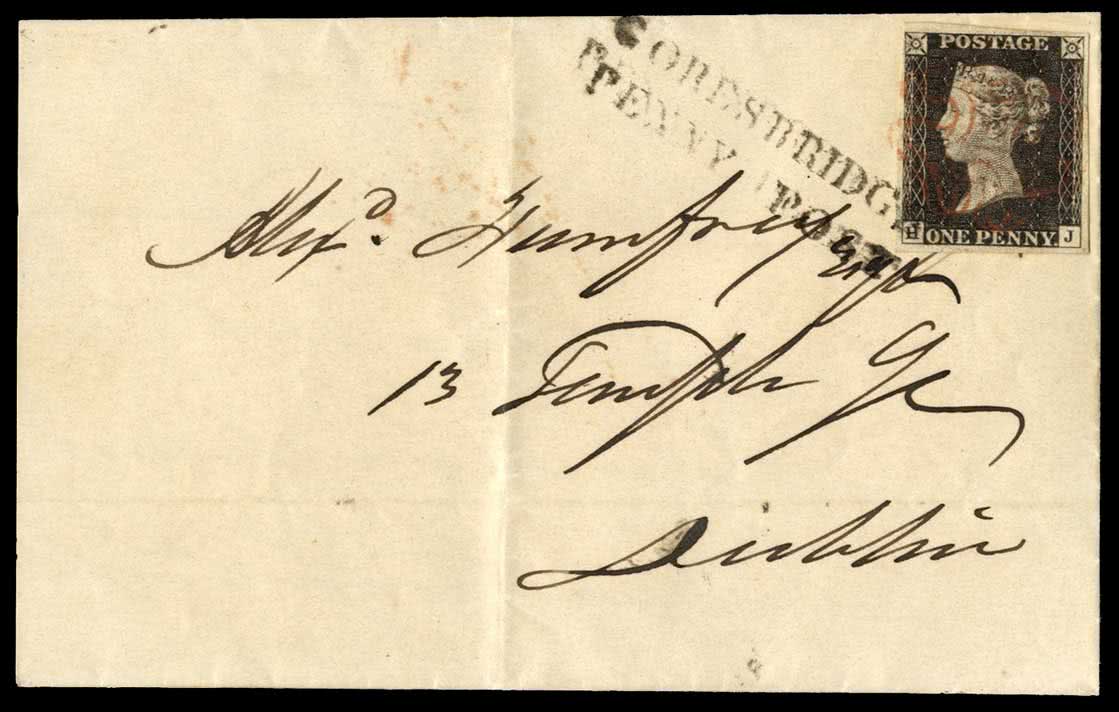 GORESBRIDGE
PENNY POST
POSTAGE
H ONE PENNY J
Alexd. Humfrey Esqr
13 Temple St
Dublin